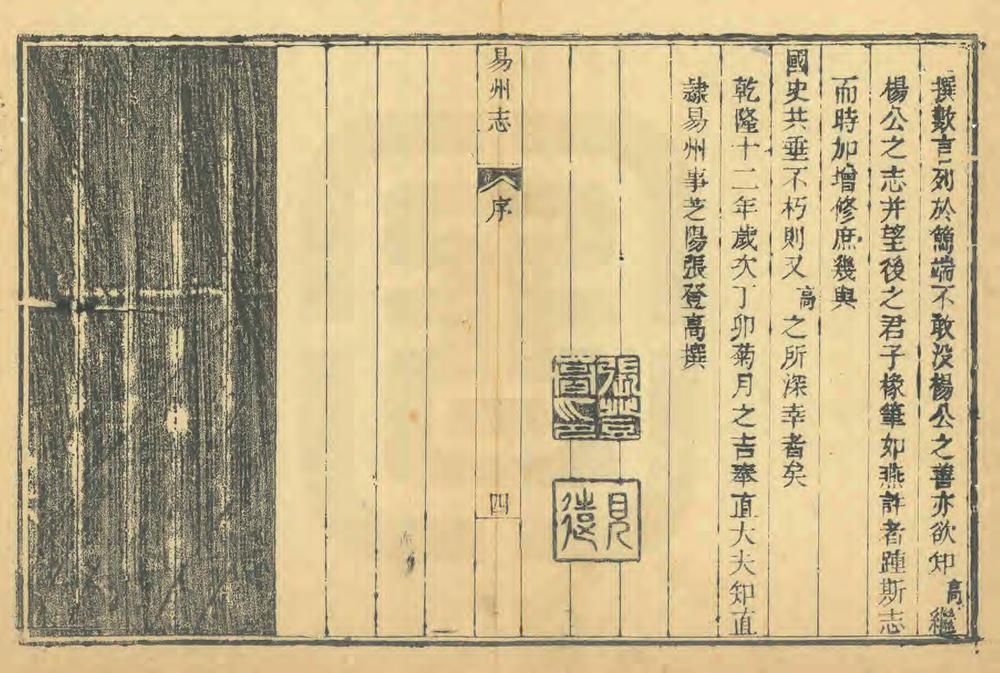 撰數言列於簡端不敢沒楊公之善亦欲知高繼
楊公之志并望後之君子椽筆如燕許者踵斯志
而時加增修庶幾與
國史共垂不朽則又高之所深幸者矣
乾隆十二年歲次丁卯菊月之吉奉直大夫知直
隸易州事芝陽張登高撰
張登高印
見遠
易州志
序
四